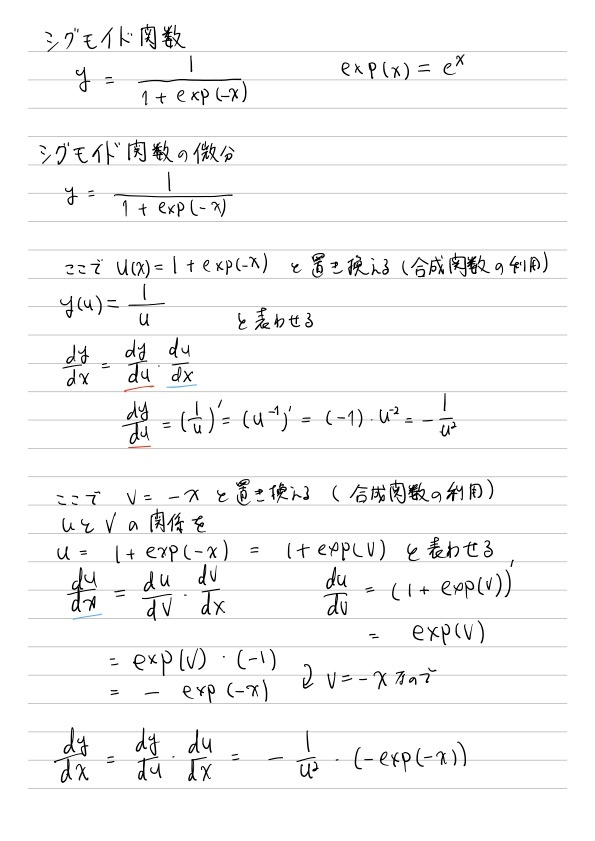 シグモイド関数
y = 1/(1 + exp(-x))　exp(x) = e^x
シグモイド関数の微分
y = 1/(1 + exp(-x))
ここで u(x) = 1 + exp(-x) と置き換える (合成関数の利用)
y(u) = 1/u と表わせる
dy/dx = dy/du · du/dx
dy/du = (1/u)' = (u^-1)' = (-1) · u^-2 = - 1/u^2
ここで v = -x と置き換える (合成関数の利用)
uとvの関係を
u = 1 + exp(-x) = 1 + exp(v) と表わせる
du/dx = du/dv · dv/dx　du/dv = (1 + exp(v))'
= exp(v)
= exp(v) · (-1)
= - exp(-x)　v = -x なので
dy/dx = dy/du · du/dx = - 1/u^2 · (-exp(-x))